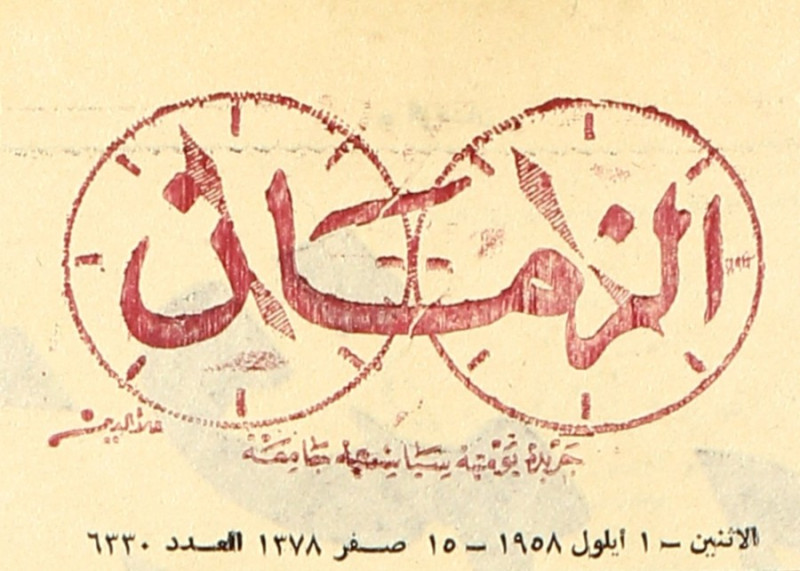 الزمان
علاء الدين
جريدة يومية سياسية جامعة
الاثنين – ١ أيلول ١٩٥٨ – ١٥ صفر ١٣٧٨ العدد ٦٣٣٠